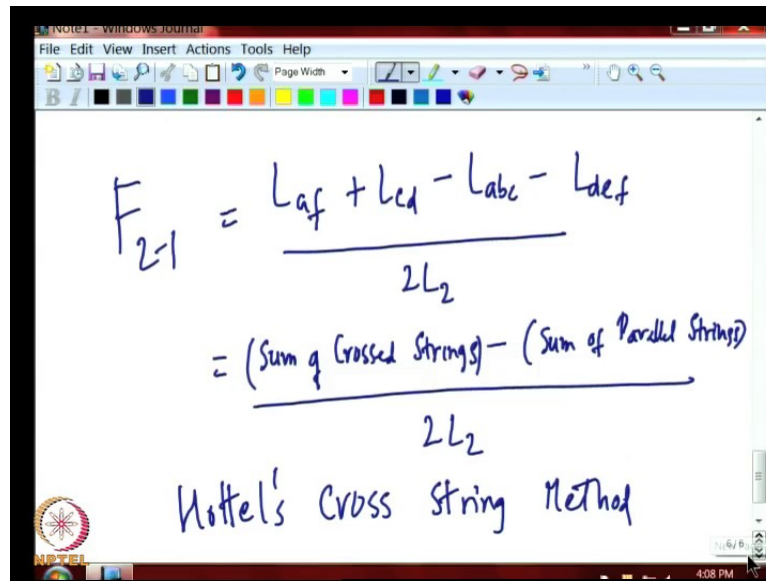 Note1 - Windows Journal
File Edit View Insert Actions Tools Help
Page Width
B I
F2-1 = Laf + Lcd - Labc - Ldef
2L2
= (Sum of Crossed Strings) - (Sum of Parallel Strings)
2L2
Hottel's Cross String Method
NPTEL
6/6
4:08 PM